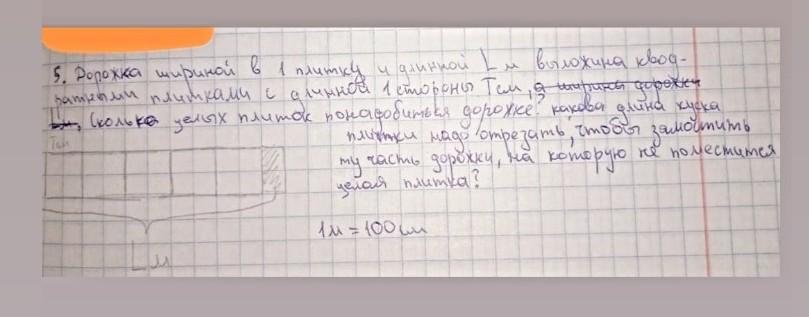 5. Дорожка шириной в 1 плитку и длинной L м выложина квад-
ратными плитками с длинной 1 стороны T см, а ширина дорожки
Сколько целых плиток понадобиться дорожке? какова длина куска
плитки надо отрезать, чтобы замостить
ту часть дорожки, на которую не поместится
целая плитка?
T см
1м = 100см
L м